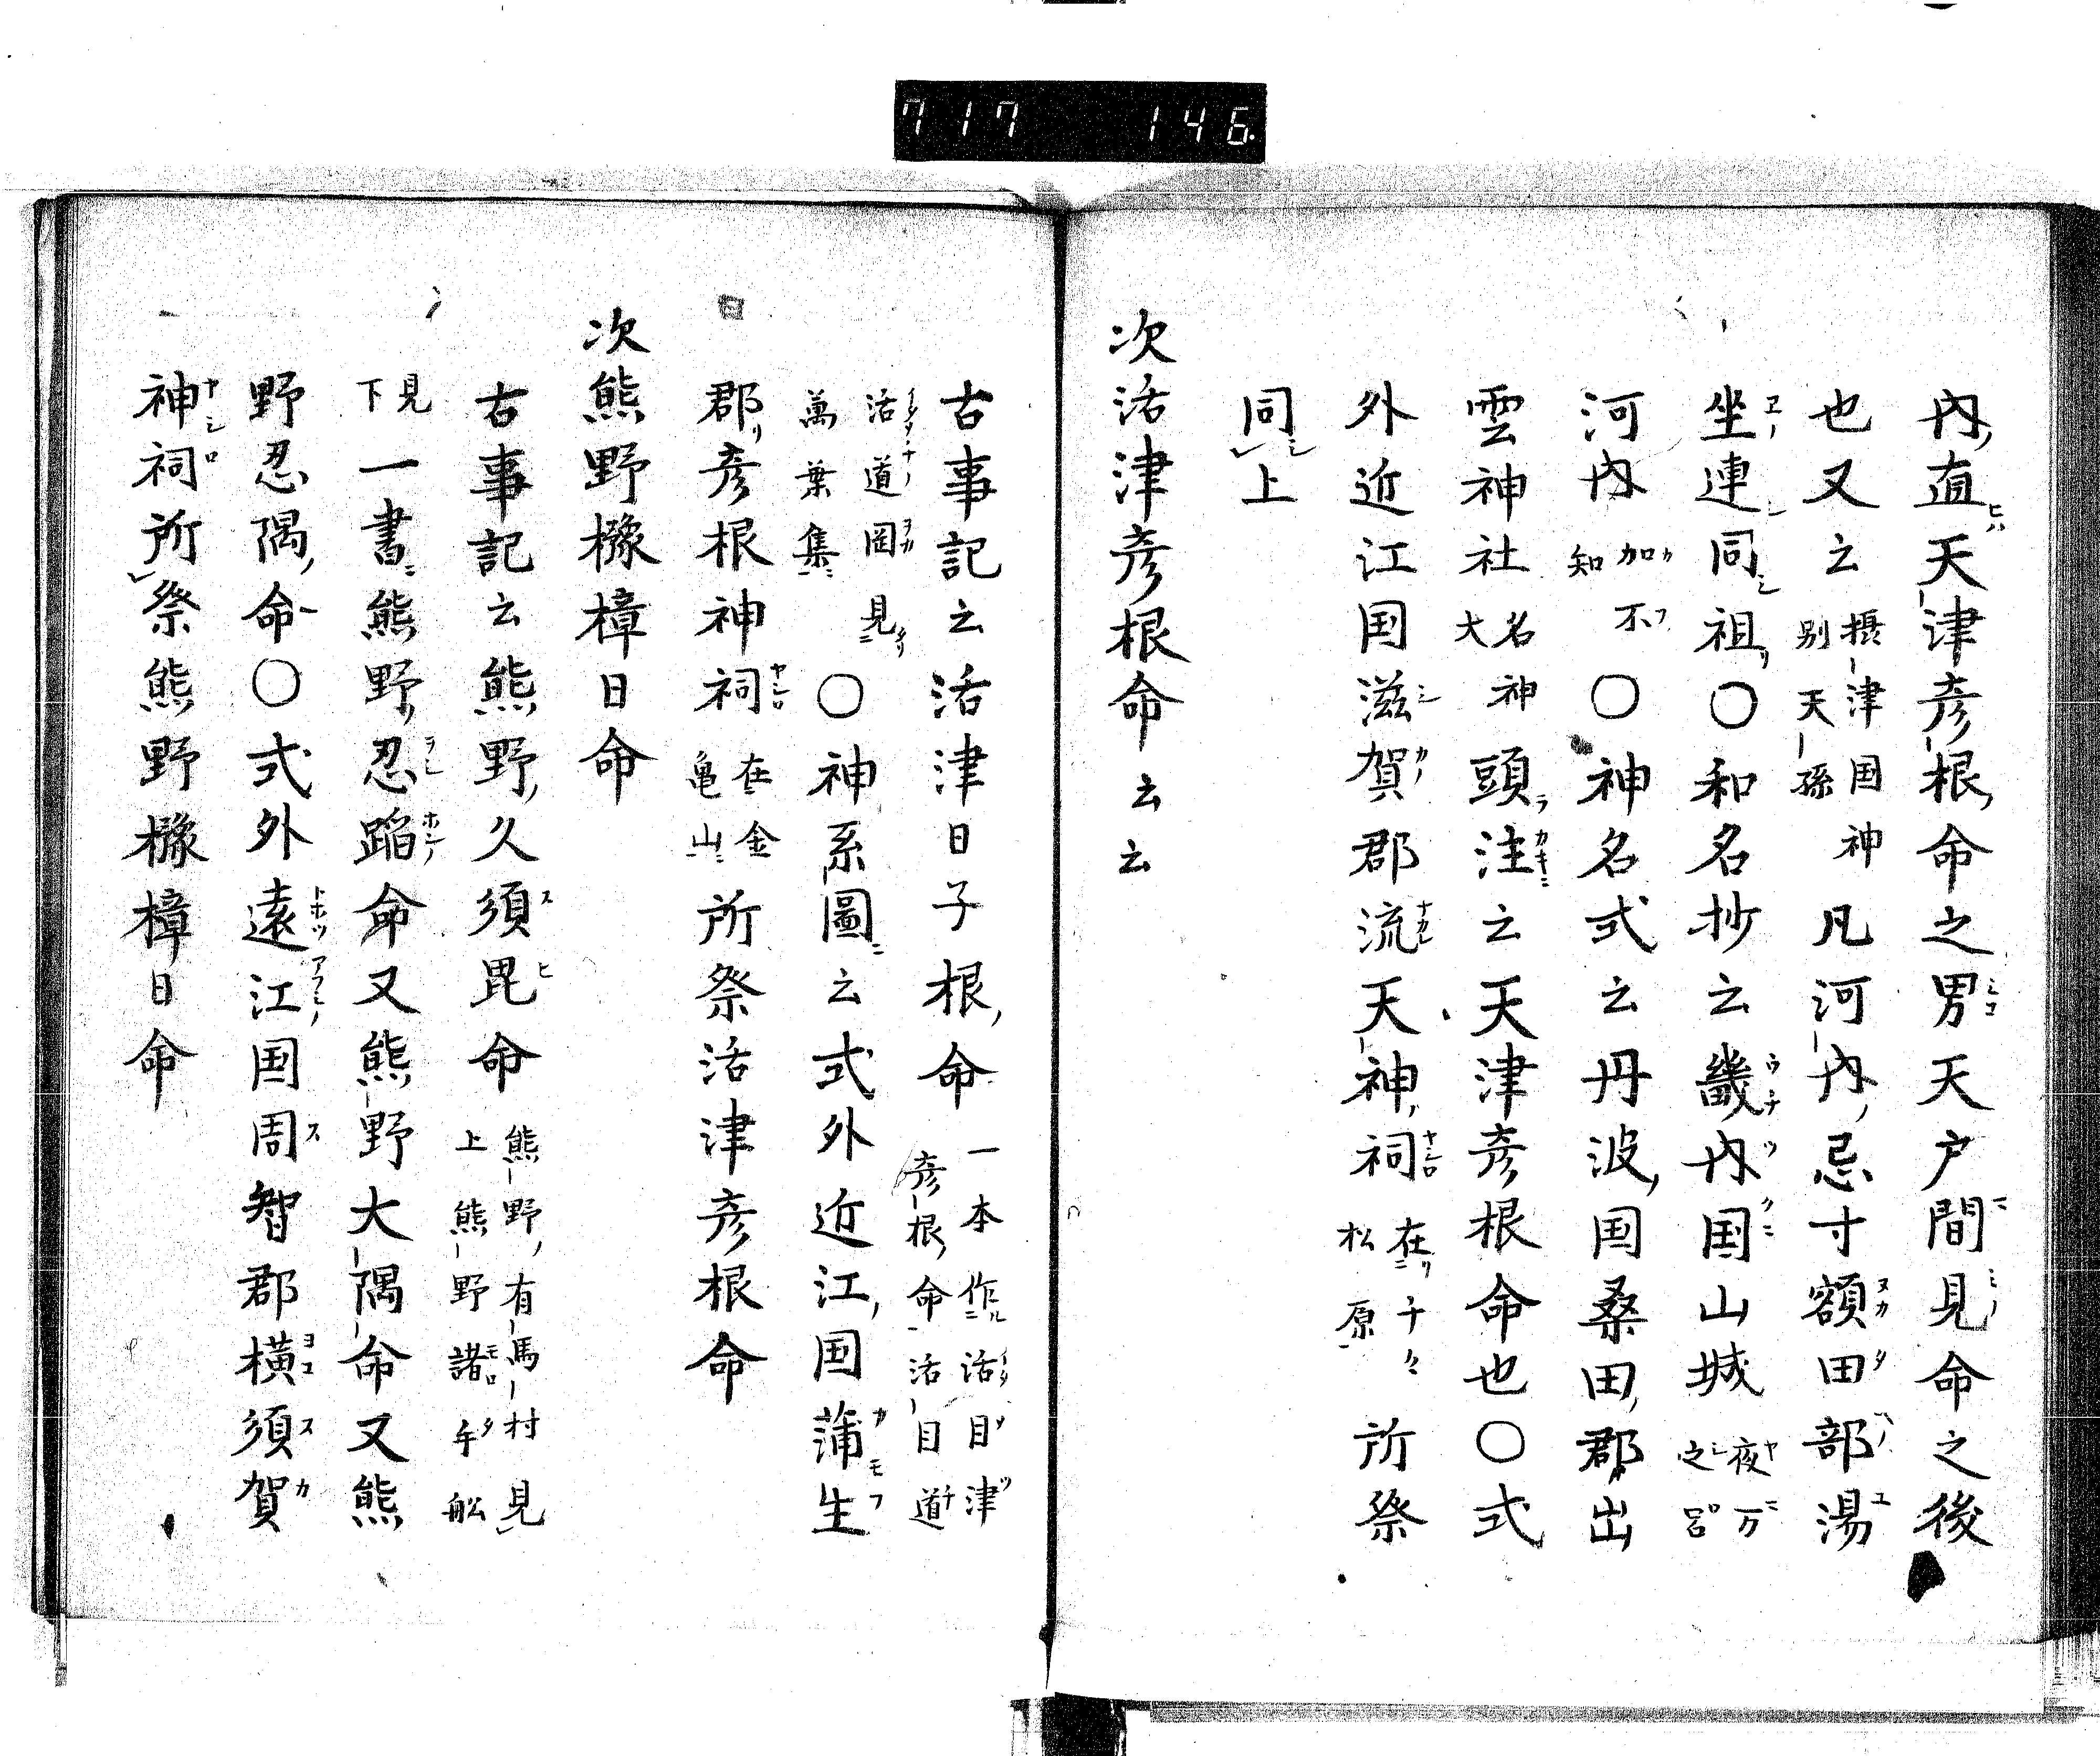 717 146.
内直天津彦根命之男天戸間見命之後
也又云摂津国神別天孫凡河内忌寸額田部湯
坐連同祖〇和名抄云畿内国山城夜万之呂
河内加不知〇神名式云丹波国桑田郡出
雲神社名神大頭注云天津彦根命也〇式
外近江国滋賀郡流天神祠在千々松原所祭
同上
次活津彦根命云云
古事記云活津日子根命一本作活目津彦根命活目道
活道岡見萬葉集〇神系圖云式外近江国蒲生
郡彦根神祠在金亀山所祭活津彦根命
次熊野櫲樟日命
古事記云熊野久須毘命熊野有馬村見上熊野諸手船
見下一書熊野忍蹈命又熊野大隅命又熊
野忍隅命〇式外遠江国周智郡横須賀
神祠所祭熊野櫲樟日命